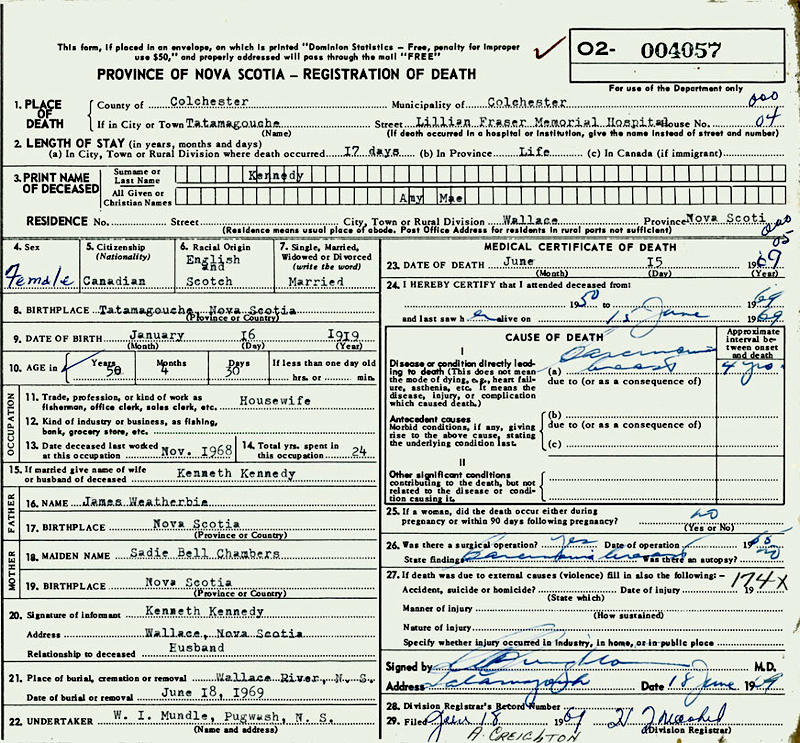 This form, if placed in an envelope, on which is printed "Dominion Statistics – Free, penalty for improper
use $50," and properly addressed will pass through the mail "FREE"
PROVINCE OF NOVA SCOTIA – REGISTRATION OF DEATH
O2- 004057
For use of the Department only
1. PLACE OF DEATH County of Colchester Municipality of Colchester 000
If in City or Town Tatamagouche Street Lillian Fraser Memorial Hospital House No. 04
(Name) (If death occurred in a hospital or institution, give the name instead of street and number)
2. LENGTH OF STAY (in years, months and days)
(a) In City, Town or Rural Division where death occurred 17 days (b) In Province Life (c) In Canada (if immigrant)
3. PRINT NAME OF DECEASED Surname or Last Name Kennedy
All Given or Christian Names Amy Mae
RESIDENCE No. Street City, Town or Rural Division Wallace Province Nova Scoti 000
(Residence means usual place of abode. Post Office Address for residents in rural parts not sufficient) 05
4. Sex Female
5. Citizenship (Nationality) Canadian
6. Racial Origin English and Scotch
7. Single, Married, Widowed or Divorced (write the word) Married
8. BIRTHPLACE Tatamagouche, Nova Scotia
(Province or Country)
9. DATE OF BIRTH January 16 1919
(Month) (Day) (Year)
10. AGE in Years 50 Months 4 Days 30 If less than one day old
hrs. or min.
OCCUPATION
11. Trade, profession, or kind of work as Housewife
fisherman, office clerk, sales clerk, etc.
12. Kind of industry or business, as fishing,
bank, grocery store, etc.
13. Date deceased last worked at this occupation Nov. 1968 14. Total yrs. spent in this occupation 24
15. If married give name of wife or husband of deceased Kenneth Kennedy
FATHER
16. NAME James Weatherbie
17. BIRTHPLACE Nova Scotia
(Province or Country)
MOTHER
18. MAIDEN NAME Sadie Bell Chambers
19. BIRTHPLACE Nova Scotia
(Province or Country)
20. Signature of informant Kenneth Kennedy
Address Wallace, Nova Scotia
Relationship to deceased Husband
21. Place of burial, cremation or removal Wallace River, N. S.
Date of burial or removal June 18, 1969
22. UNDERTAKER W. I. Mundle, Pugwash, N. S.
(Name and address)
MEDICAL CERTIFICATE OF DEATH
23. DATE OF DEATH June 15 1969
(Month) (Day) (Year)
24. I HEREBY CERTIFY that I attended deceased from:
1950 to 1969
and last saw h er alive on 15 June 1969
CAUSE OF DEATH
Approximate interval between onset and death
I
Disease or condition directly leading to death (This does not mean the mode of dying, e.g., heart failure, asthenia, etc. It means the disease, injury, or complication which caused death.)
(a) Carcinoma breast 4 yrs.
due to (or as a consequence of)
Antecedent causes
Morbid conditions, if any, giving rise to the above cause, stating the underlying condition last.
(b)
due to (or as a consequence of)
(c)
II
Other significant conditions contributing to the death, but not related to the disease or condition causing it.
25. If a woman, did the death occur either during no
pregnancy or within 90 days following pregnancy? (Yes or No)
26. Was there a surgical operation? yes Date of operation 1965
State findings Carcinoma breast Was there an autopsy? no
27. If death was due to external causes (violence) fill in also the following:– 174X
Accident, suicide or homicide? Date of injury 19
(State which)
Manner of injury
(How sustained)
Nature of injury
Specify whether injury occurred in industry, in home, or in public place
Signed by M.D.
Address Tatamagouche Date 18 June 1969
28. Division Registrar's Record Number
29. Filed June 18 1969
(Division Registrar)
A. CREIGHTON